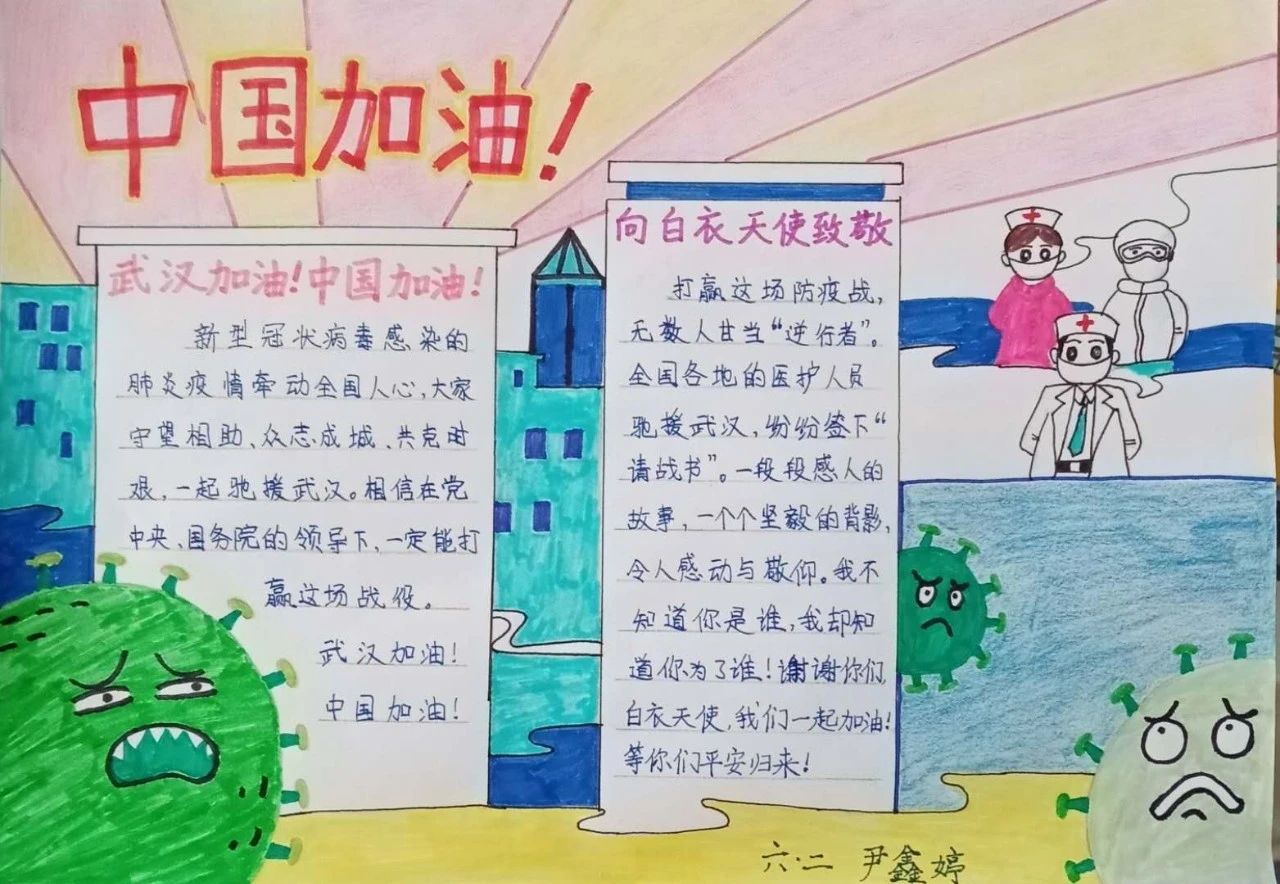 中国加油!
武汉加油!中国加油!
新型冠状病毒感染的
肺炎疫情牵动全国人心,大家
守望相助、众志成城、共克时
艰,一起驰援武汉。相信在党
中央、国务院的领导下,一定能打
赢这场战役。
武汉加油!
中国加油!
向白衣天使致敬
打赢这场防疫战,
无数人甘当“逆行者”。
全国各地的医护人员
驰援武汉,纷纷签下“
请战书”。一段段感人的
故事,一个个坚毅的背影,
令人感动与敬仰。我不
知道你是谁,我却知
道你为了谁!谢谢你们,
白衣天使,我们一起加油!
等你们平安归来!
六.二 尹鑫婷